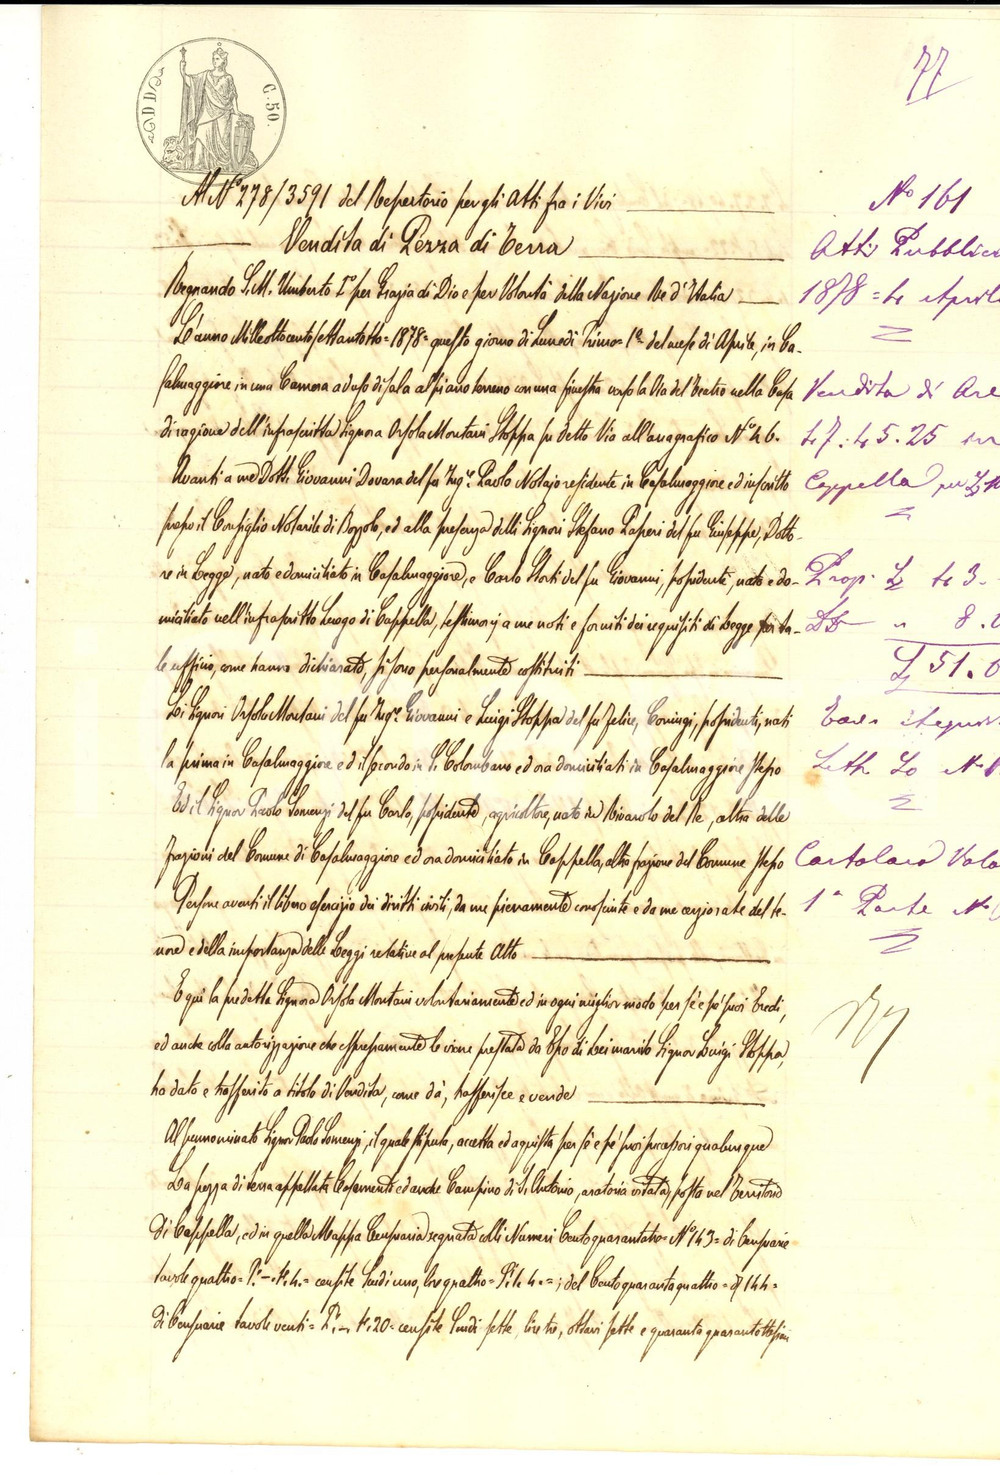 C. 50.
77
Al N° 278/3591 del Repertorio per gli Atti fra i Vivi
Vendita di Pezza di Terra
Regnando S. M. Umberto I° per Grazia di Dio e per Volontà della Nazione Re d'Italia
L'anno Milleottocentosettantotto = 1878 = questo giorno di Lunedì Primo = 1° del mese di Aprile, in Ca-
salmaggiore in una Camera ad uso di sala al piano terreno con una finestra verso la Via del Teatro nella Casa
di ragione dell'infrascritta Signora Orsola Montani Stoppa in detta Via all'anagrafico N° 46.
Avanti a me Dott. Giovanni Dovara del fu Ing.r Paolo Notajo residente in Casalmaggiore ed inscritto
presso il Consiglio Notarile di Bozzolo, ed alla presenza delli Signori Stefano del fu Giuseppe, Dotto-
re in Legge, nato e domiciliato in Casalmaggiore, e Carlo Storti del fu Giovanni, possidente, nato e do-
miciliato nell'infrascritto Luogo di Cappella, testimonj a me noti e forniti dei requisiti di Legge per ta-
le ufficio, come hanno dichiarato, si sono personalmente costituiti
Li Signori Orsola Montani del fu Ing.r Giovanni e Luigi Stoppa del fu Felice, Coniugi, possidenti, nati
la prima in Casalmaggiore ed il secondo in S. Colombano ed ora domiciliati in Casalmaggiore stesso
Ed il Signor Paolo Somenzi del fu Carlo, possidente, agricoltore, nato in Rivarolo del Re, altra delle
frazioni del Comune di Casalmaggiore ed ora domiciliato in Cappella, altra frazione del Comune stesso
Persone aventi il libero esercizio dei diritti civili, da me pienamente conosciute e da me cerziorate del te-
nore e della importanza delle Leggi relative al presente Atto
E qui la predetta Signora Orsola Montani volontariamente ed in ogni miglior modo per sé e pe' suoi Eredi,
ed anche colla autorizzazione che espressamente le viene prestata da Esso di Lei marito Signor Luigi Stoppa,
ha dato e trasferito a titolo di Vendita, come dà, trasferisce e vende
Al prenominato Signor Paolo Somenzi, il quale stipula, accetta ed acquista per sé e pe' suoi successori qualunque
La pezza di terra appellata Casamento ed anche Campino di S. Antonio, aratoria vitata, posta nel Territorio
di Cappella, ed in quella Mappa Censuaria segnata colli Numeri Centoquarantatre = N° 143 = di Censuarie
tavole quattro = P.e -. t.e 4. = censite Scudi uno, lire quattro = 1. 4. =; del Centoquarantaquattro = 144 =
di Censuarie tavole venti = P.e -. t. 20 = censite Scudi sette, lire tre, ottavi sette e quaranta quarantottesimi
N° 161
Atti Pubblici
1878 = 4 Aprile
Vendita di Are
47.45.25 in
Cappella per
Prop. 43.
8.
51.0
Cartolaro
1° Parte N°